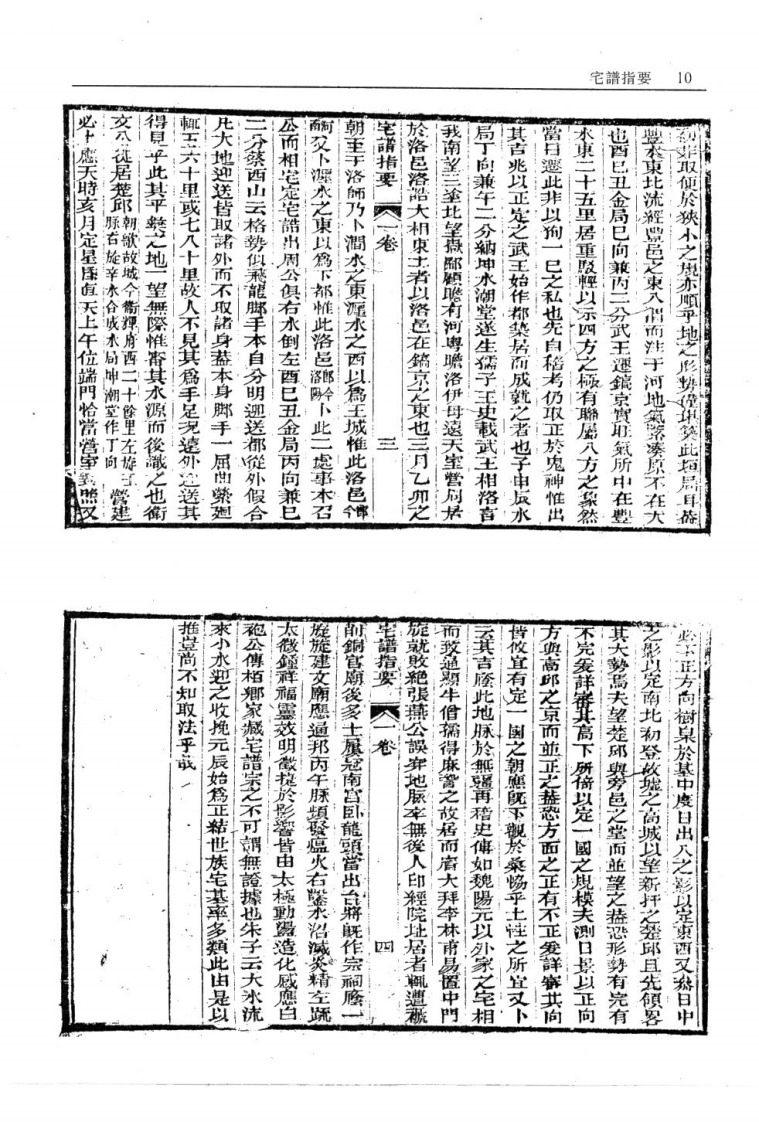 宅譜指要 10
取便於狹小之 亦順乎地之形勢 築此垣局耳蓋
豐水東北流經豐邑之東入渭而注于河地氣落湊原不在大
也酉巳丑金局巳向兼丙二分武王遷鎬京實旺氣所中在豐
水東二十五里居重馭輕以示四方之極有聯屬八方之象然
當日遷此非以狥一巳之私也先自稽考仍取正於鬼神惟出
其吉兆以正定之武王始作都築居而成就之者也子申辰水
局丁向兼午二分納坤水潮堂遂生孺子王史載武王相洛言
我南望三塗北望嶽鄙顧瞻有河粵瞻洛伊毋遠天室營周居
於洛邑洛誥大相東土者以洛邑在鎬京之東也三月乙卯之
宅譜指要 一卷 三
朝至于洛師乃卜澗水之東瀍水之西以爲王城惟此洛邑
又卜瀍水之東以爲下都惟此洛邑洛陽 卜此二處事本召
公而相宅定宅誥出周公俱右水倒左酉巳丑金局丙向兼巳
二分蔡西山云格勢似飛龍脚手本自分明迎送都從外假合
凡大地迎送皆取諸外而不取諸身蓋本身脚手一屈曲縈廻
輒五六十里或七八十里故人不見其爲手足況遠外之送其
得見乎此其平 之地一望無際惟審其水源而後識之也衛
文公徙居楚邱朝歌故城今衛輝府西二十餘里左旋 脉右旋辛水合成水局坤潮堂作丁向營建
必上應天時亥月定星昏直天上午位端門恰當營室對照又
必下正方向樹臬於基中度日出入之影以定東西又叅日中
之影以定南北初登故墟之高城以望新扞之楚邱且先領畧
其大勢焉夫望楚邱與旁邑之堂而並望之葢恐形勢有完有
不完爰詳審其高下所倚以定一國之規模夫測日景以正向
方與高邱之京而並正之葢恐方面之正有不正爰詳審其向
背攸宜有定一國之朝應旣下觀於桑暢乎土性之所宜又卜
云其吉膺此地脉於無疆再稽史傳如魏陽元以外家之宅相
而致通顯牛僧孺得麻 之故居而唐大拜李林甫易置中門
旋就敗絕張燕公誤穿地脉卒無後人印經院址居者輒遭
宅譜指要 一卷 四
前銅官廟後多士屢冠南宫卧龍頭當出台將旣作宗祠廢一
旋旋建文廟應通邦丙午脉煩發瘟火右鑿水沼滅炎精左疏
太微鐘祥福靈效明徵捷於影響皆由太極動盪造化感應白
苑公傳栢鄉家藏宅譜宗之不可謂無證據也朱子云大水流
來小水迎之收挽元辰始爲正結世族宅基率多類此由是以
推豈尚不知取法乎哉